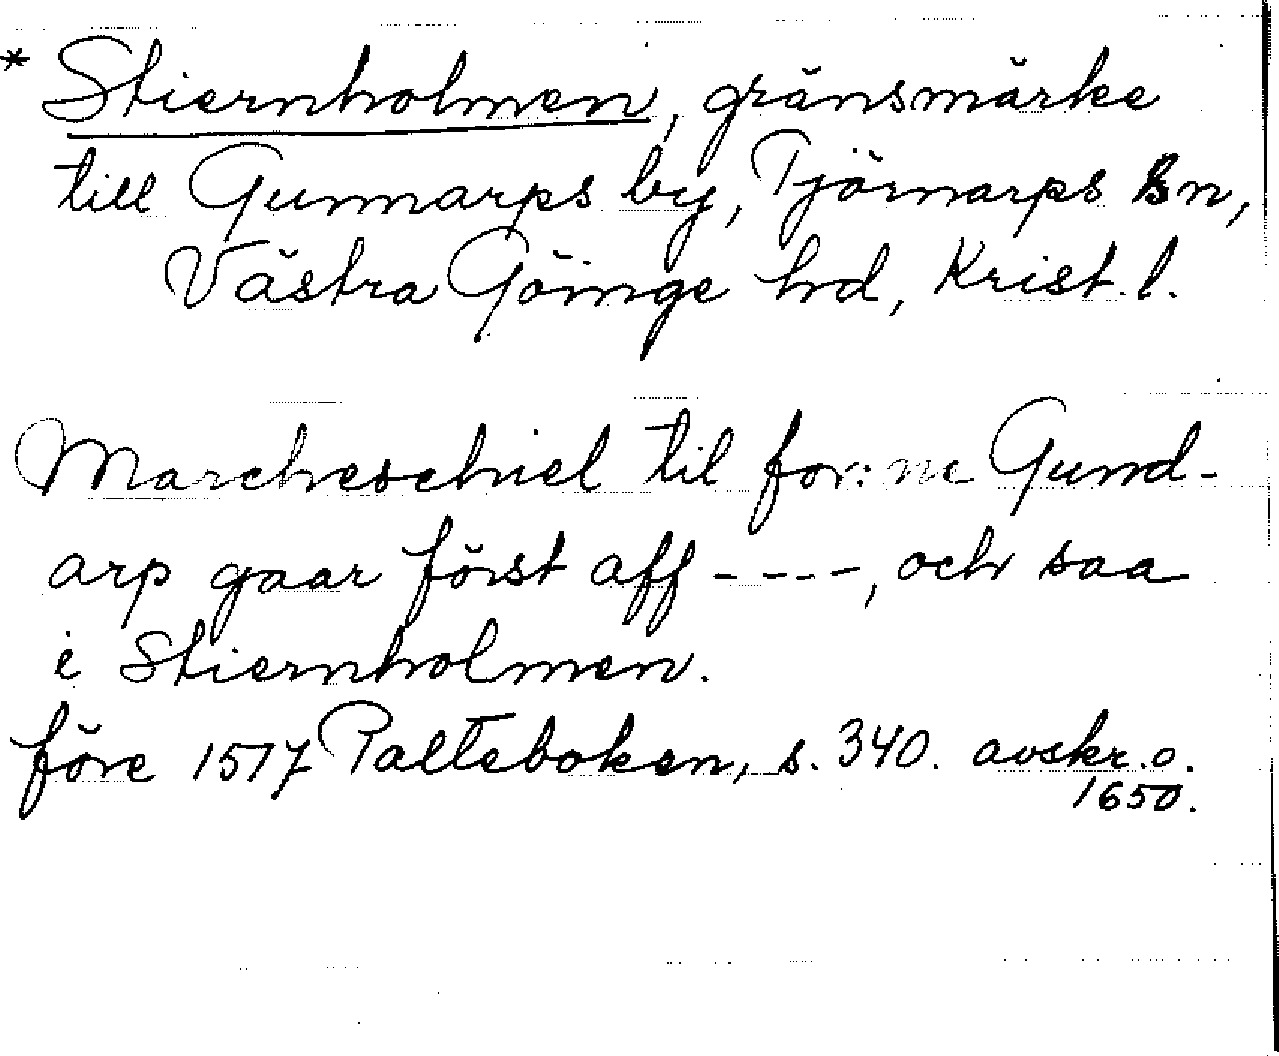 * Stiernholmen, gränsmärke
till Gunnarps by, Tjörnarps sn,
Västra Göinge hd, Krist. l.
Marcheschiel til for: ne Gund-
arp gaar först aff ----, och saa
i Stiernholmen.
före 1517 Palteboken, s. 340. avskr. o.
1650.